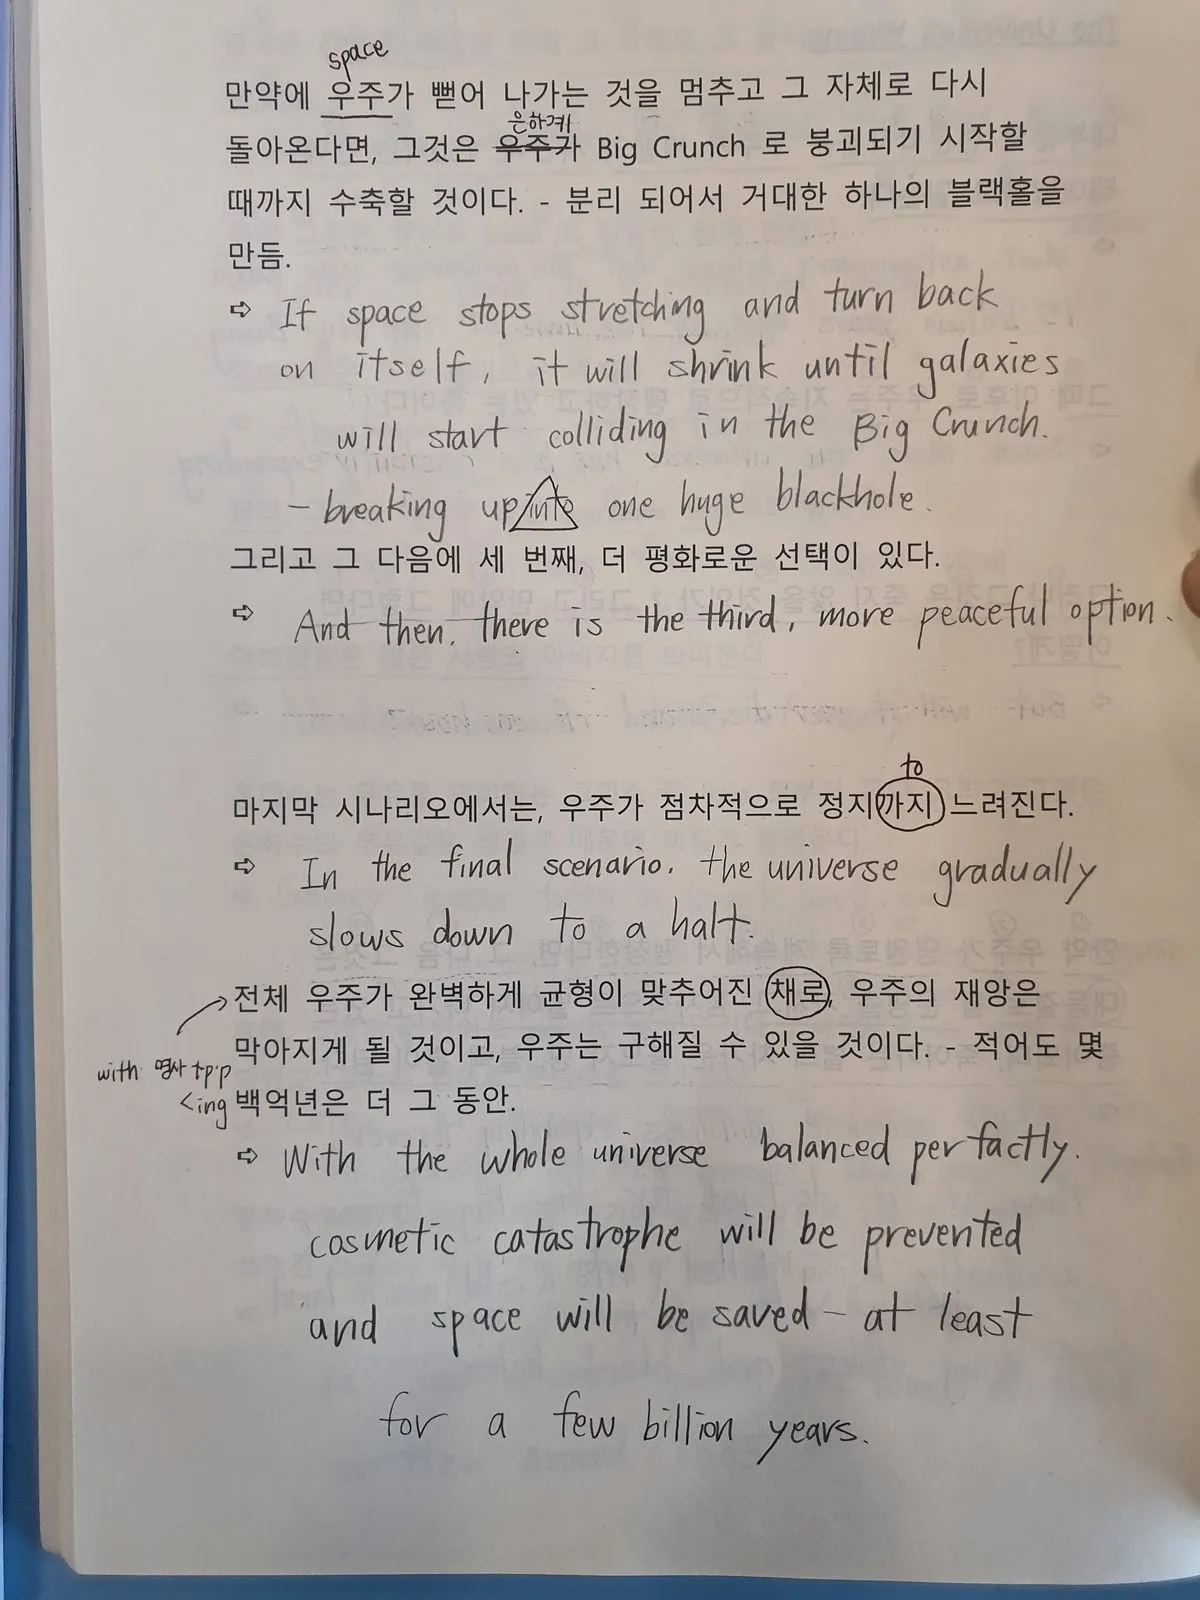 space
만약에 우주가 뻗어 나가는 것을 멈추고 그 자체로 다시
은하계
돌아온다면, 그것은 우주가 Big Crunch 로 붕괴되기 시작할
때까지 수축할 것이다. - 분리 되어서 거대한 하나의 블랙홀을
만듬.
⇨ If space stops stretching and turn back
on itself, it will shrink until galaxies
will start colliding in the Big Crunch.
- breaking up into one huge blackhole.
그리고 그 다음에 세 번째, 더 평화로운 선택이 있다.
⇨ And then, there is the third, more peaceful option.
to
마지막 시나리오에서는, 우주가 점차적으로 정지까지 느려진다.
⇨ In the final scenario, the universe gradually
slows down to a halt.
전체 우주가 완벽하게 균형이 맞추어진 채로, 우주의 재앙은
막아지게 될 것이고, 우주는 구해질 수 있을 것이다. - 적어도 몇
with 명사 + p.p
<ing
백억년은 더 그 동안.
⇨ With the whole universe balanced perfactly.
cosmetic catastrophe will be prevented
and space will be saved - at least
for a few billion years.